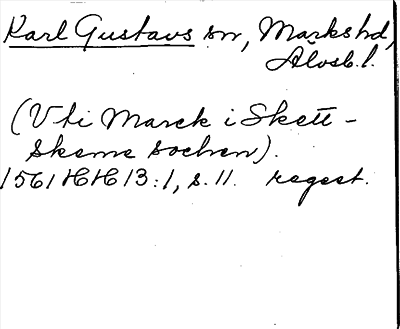 Karl Gustavs sn, Markshd,
Älvsb. l.
(Vti Marck i Skett-
skeme sochen).
1561 HH 13:1, s. 11. regest.